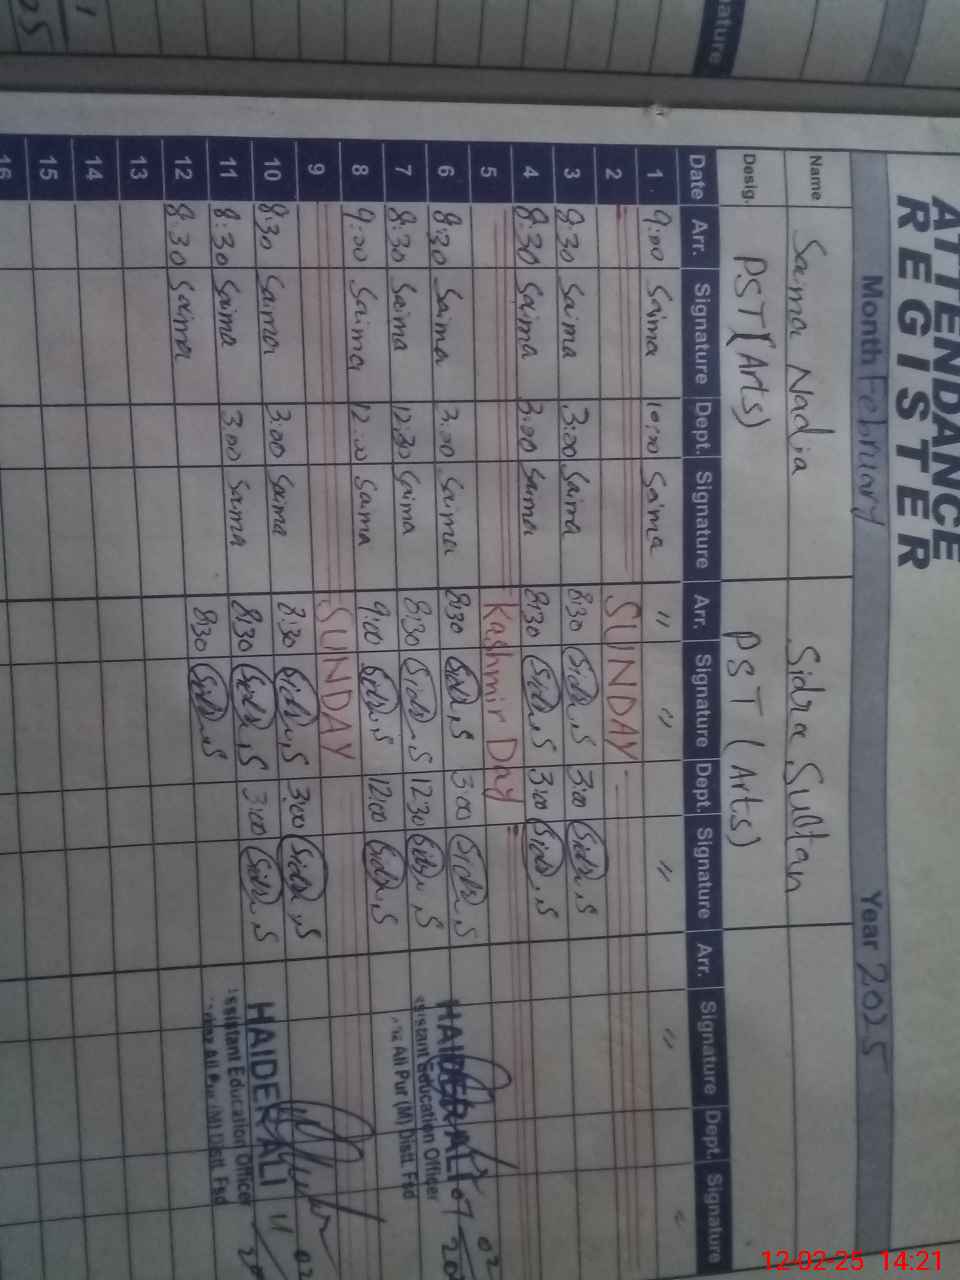 ature
ATTENDANCE
REGISTER
Month February Year 2025
Name Saima Nadia Sidra Sultan
Desig. PST (Arts) PST (Arts)
Date Arr. Signature Dept. Signature Arr. Signature Dept. Signature Arr. Signature Dept. Signature
1 9:00 Saima 10:00 Saima " " " " "
2 SUNDAY
3 8:30 Saima 3:00 Saima 8:30 Sidra,S 3:00 Sidra,S
4 8:30 Saima 3:00 Saima 8:30 Sidra,S 3:00 Sidra,S
5 Kashmir Day
6 8:30 Saima 3:00 Saima 8:30 Sidra,S 3:00 Sidra,S
7 8:30 Saima 12:30 Saima 8:30 Sidra,S 12:30 Sidra,S
HAIDER ALI 07 02
Assistant Education Officer
Ali Pur (M) Distt. Fsd
8 9:00 Saima 12:00 Saima 9:00 Sidra,S 12:00 Sidra,S
9 SUNDAY
10 8:30 Saima 3:00 Saima 8:30 Sidra,S 3:00 Sidra,S
11 8:30 Saima 3:00 Saima 8:30 Sidra,S 3:00 Sidra,S
HAIDER ALI 11 02
Assistant Education Officer
Ali Pur (M) Distt. Fsd
12 8:30 Saima 8:30 Sidra,S
13
14
15
16
12-02-25 14:21